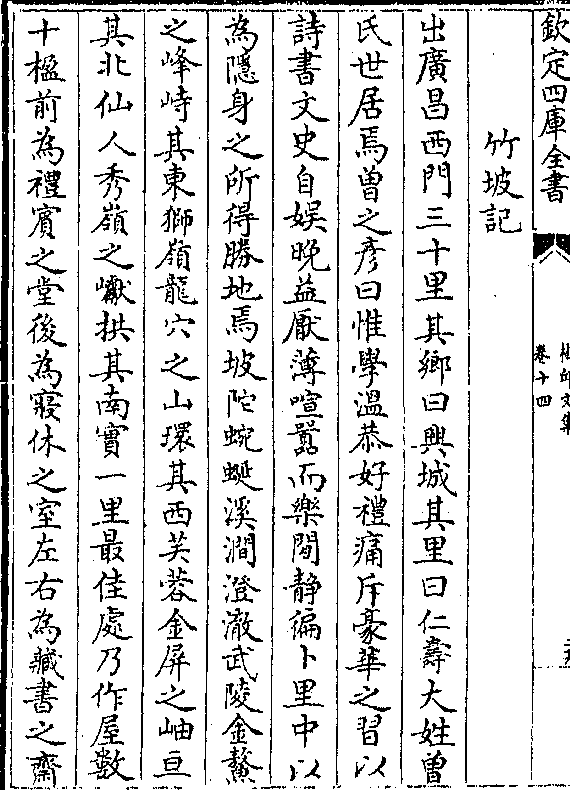 欽定四庫全書
椒邱文集
卷十四
竹坡記
出廣昌西門三十里其鄉曰興城其里曰仁壽大姓曾
氏世居焉曾之彦曰惟學溫恭好禮痛斥豪華之習以
詩書文史自娱晚益厭薄喧囂而樂閒静徧卜里中以
為隱身之所得勝地焉坡陀蜿蜒溪澗澄澈武陵金鰲
之峰峙其東獅嶺龍穴之山環其西芙蓉金屏之岫亘
其北仙人秀嶺之巘拱其南實一里最佳處乃作屋數
十楹前為禮賓之堂後為寢休之室左右為藏書之齋